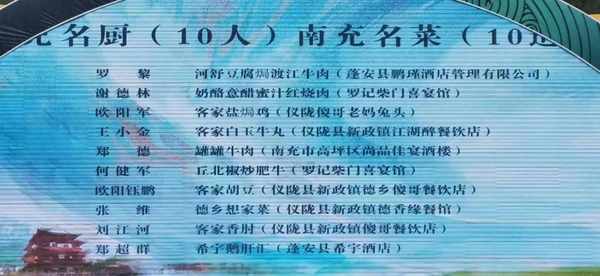 名厨（10人）南充名菜（10道
罗黎 河舒豆腐焗渡江牛肉（蓬安县鹏瑾酒店管理有限公司）
谢德林 奶酪意醋蜜汁红烧肉（罗记柴门喜宴馆）
欧阳军 客家盐焗鸡（仪陇傻哥老妈兔头）
王小金 客家白玉牛丸（仪陇县新政镇江湖醉餐饮店）
郑德 罐罐牛肉（南充市高坪区尚品佳宴酒楼）
何健军 丘北椒炒肥牛（罗记柴门喜宴馆）
欧阳钰鹏 客家胡豆（仪陇县新政镇德乡傻哥餐饮店）
张维 德乡想家菜（仪陇县新政镇德香缘餐馆）
刘江河 客家香肘（仪陇县新政镇傻哥餐饮店）
郑超群 希宇鹅肝汇（蓬安县希宇酒店）